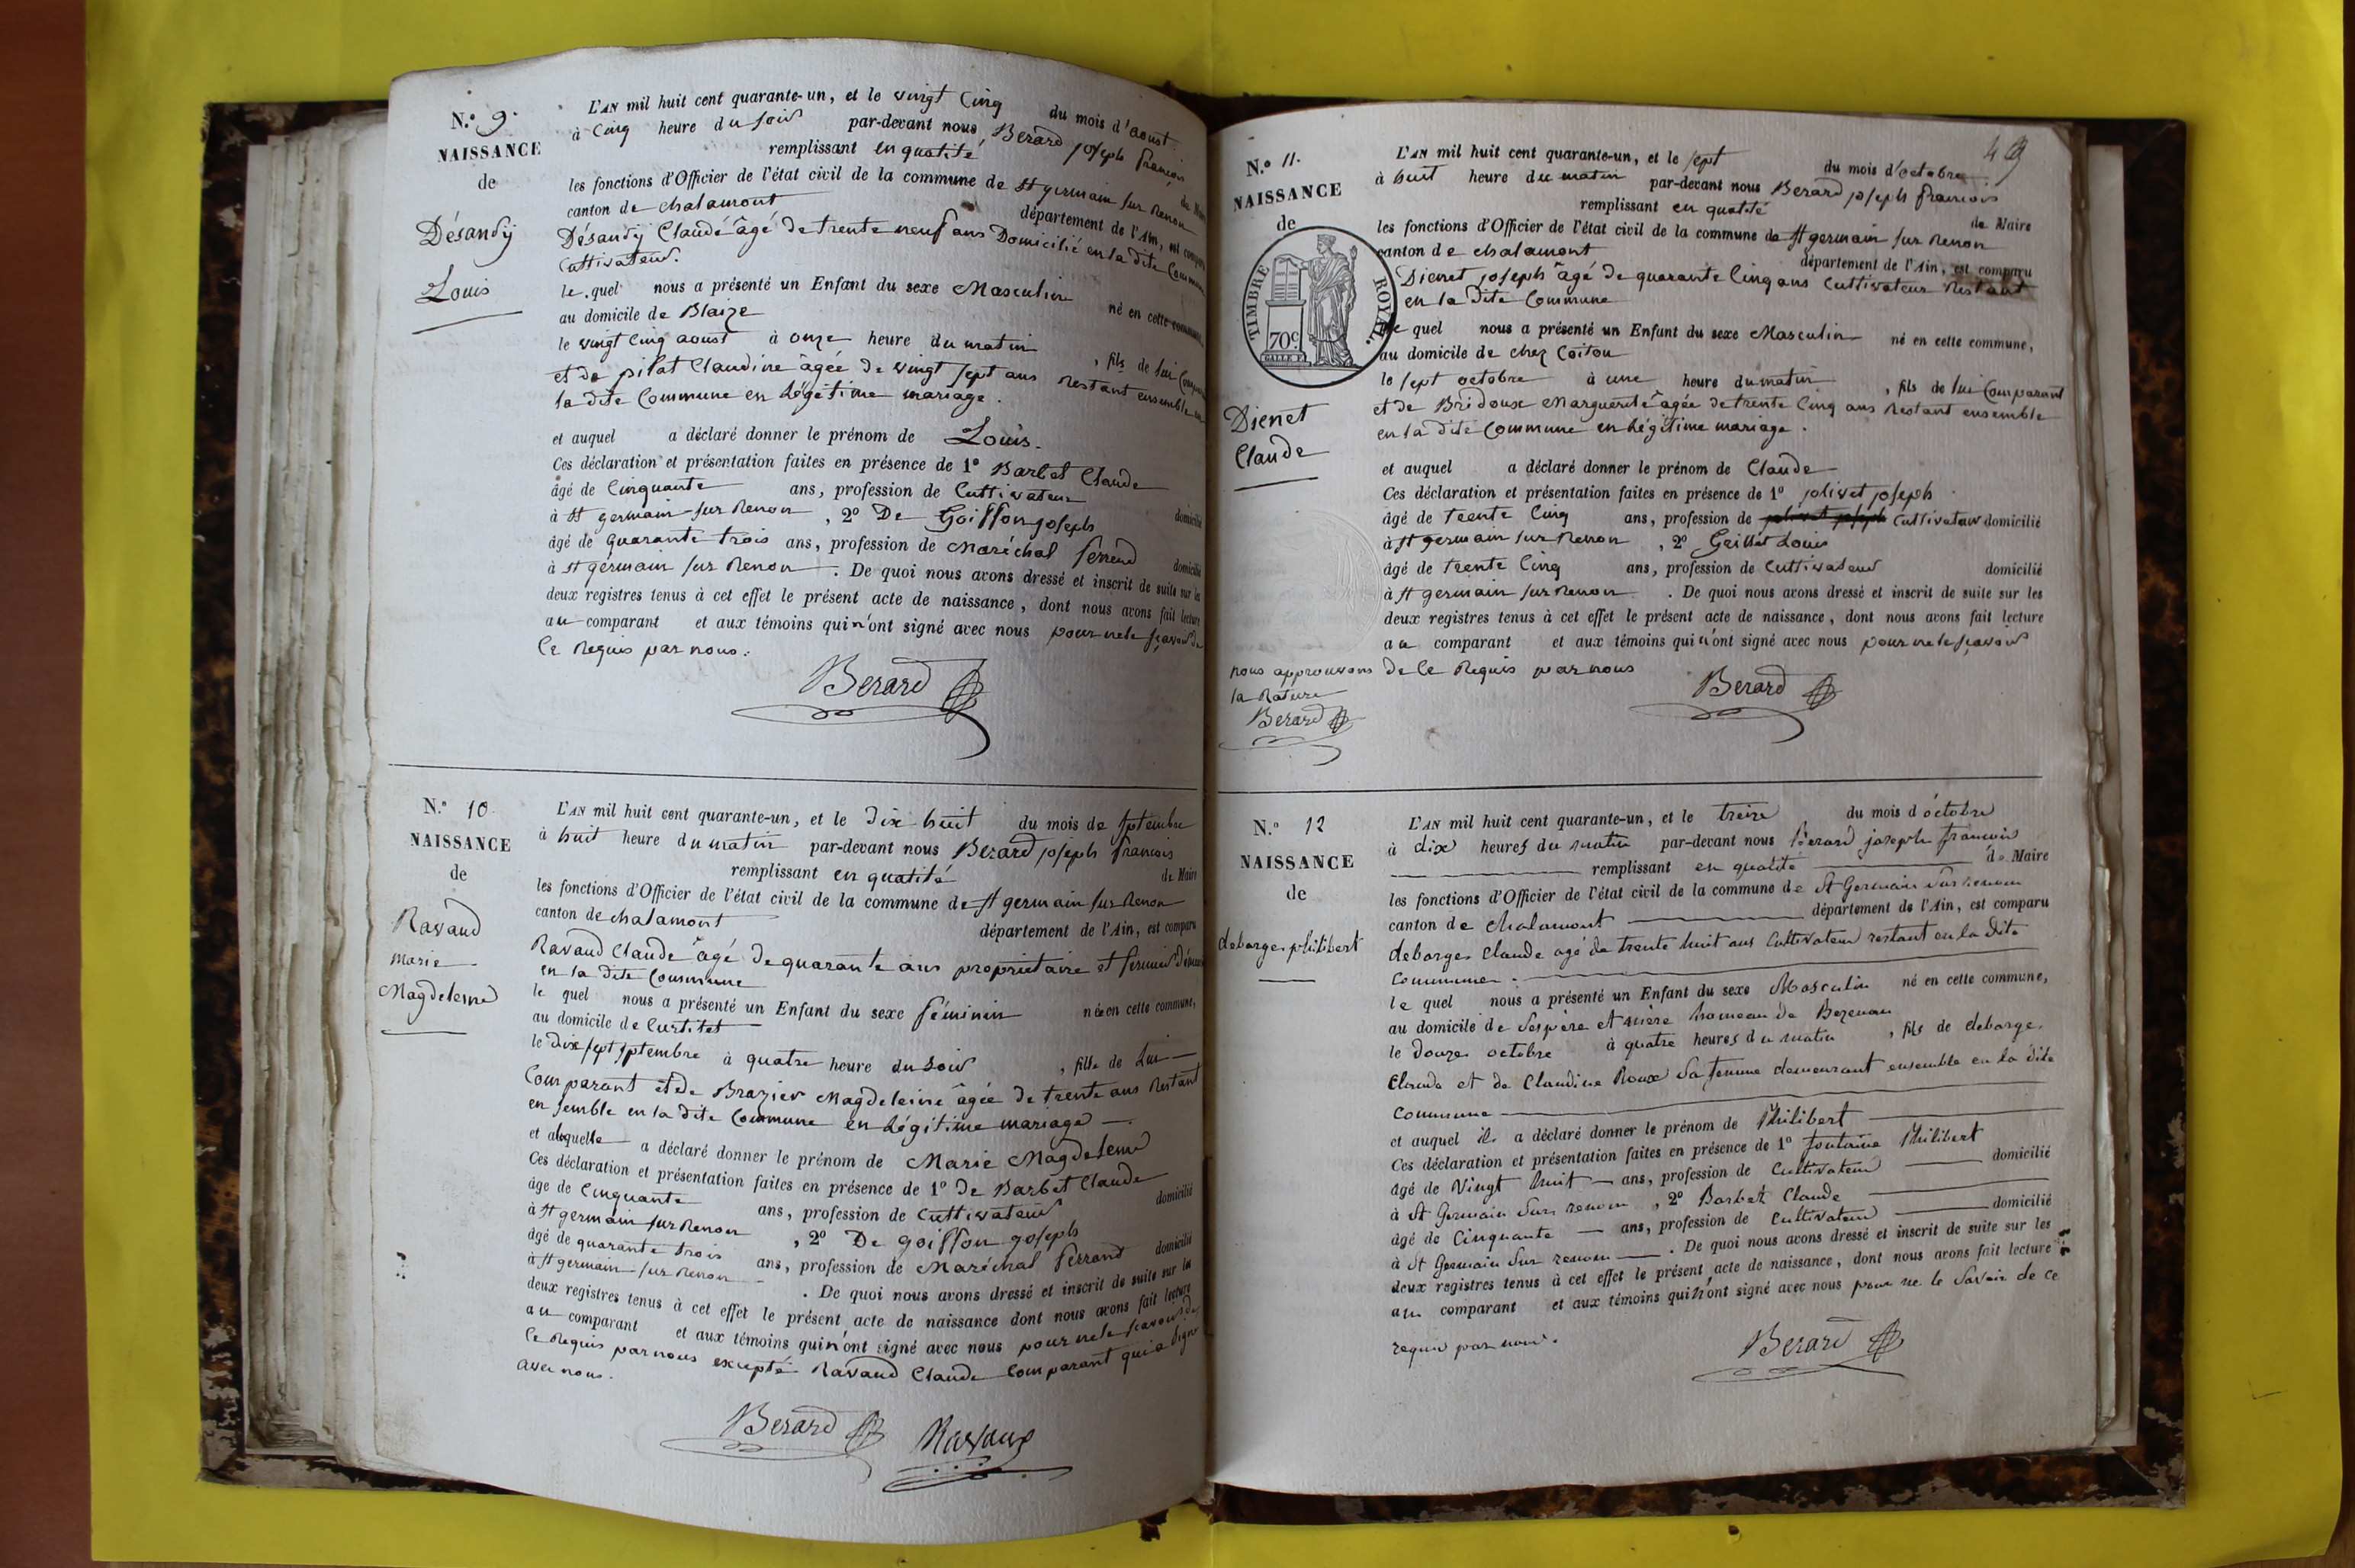 N.° 9.
NAISSANCE
de
Désandy
Louis
L'AN mil huit cent quarante-un, et le vingt Cinq du mois d'aoust
à Cinq heure du soir par-devant nous Berard joseph françois
remplissant en qualité de Maire
les fonctions d'Officier de l'état civil de la commune de St germain sur Renon
canton de chalamont département de l'Ain, est comparu
Désandy Claude âgé de trente neuf ans Domicilié en la dite Commune
Cultivateur.
le quel nous a présenté un Enfant du sexe Masculin né en cette commune,
au domicile de Blaize
le vingt Cinq aoust à onze heure du matin , fils de lui Comparant
et de pilat Claudine âgée de vingt sept ans Restant ensemble en
la dite Commune en légitime mariage.
et auquel a déclaré donner le prénom de Louis.
Ces déclaration et présentation faites en présence de 1° Barbet Claude
âgé de Cinquante ans, profession de Cultivateur domicilié
à St germain sur Renon , 2° De Goiffon joseph
âgé de quarante trois ans, profession de Maréchal ferrend domicilié
à St germain sur Renon . De quoi nous avons dressé et inscrit de suite sur les
deux registres tenus à cet effet le présent acte de naissance, dont nous avons fait lecture
au comparant et aux témoins qui n'ont signé avec nous pour ne le sçavoir de
Ce Requis par nous.
Berard
N.° 10
NAISSANCE
de
Ravaud
Marie
Magdeleine
L'AN mil huit cent quarante-un, et le dix huit du mois de septembre
à huit heure du matin par-devant nous Berard joseph francois
remplissant en qualité de Maire
les fonctions d'Officier de l'état civil de la commune de St germain sur Renon
canton de chalamont département de l'Ain, est comparu
Ravaud Claude âgé de quarante ans proprietaire et fermier
en la dite Commune
le quel nous a présenté un Enfant du sexe féminin née en cette commune,
au domicile de Curtitet
le dix sept septembre à quatre heure du soir , fille de Lui
Comparant et de Brazier Magdeleine âgée de trente ans Restant
ensemble en la dite Commune en légitime mariage
et alaquelle a déclaré donner le prénom de Marie Magdeleine
Ces déclaration et présentation faites en présence de 1° De Barbet Claude
âge de Cinquante ans, profession de Cultivateur domicilié
à St germain sur Renon , 2° De goiffon joseph
âgé de quarante trois ans, profession de Maréchal ferrand domicilié
à St germain sur Renon . De quoi nous avons dressé et inscrit de suite sur les
deux registres tenus à cet effet le présent acte de naissance dont nous avons fait lecture
au comparant et aux témoins qui n'ont signé avec nous pour ne le scavoir de
Ce Requis par nous excepté Ravaud Claude Comparant qui a signé
avec nous.
Berard Ravaud
49
N.° 11.
NAISSANCE
de
TIMBRE ROYAL
70c
Dienet
Claude
nous approuvons
la Rature
Berard
L'AN mil huit cent quarante-un, et le sept du mois d'octobre
à huit heure du matin par-devant nous Berard joseph francois
remplissant en qualité de Maire
les fonctions d'Officier de l'état civil de la commune de St germain sur Renon
canton de chalamont département de l'Ain, est comparu
Dienet joseph âgé de quarante Cinq ans Cultivateur Restant
en la dite Commune
le quel nous a présenté un Enfant du sexe Masculin né en cette commune,
au domicile de chez Coitou
le sept octobre à une heure du matin , fils de lui Comparant
et de Bridoux Marguerite âgée de trente Cinq ans Restant ensemble
en la dite Commune en légitime mariage.
et auquel a déclaré donner le prénom de Claude
Ces déclaration et présentation faites en présence de 1° jolivet joseph
âgé de trente Cinq ans, profession de jolivet joseph Cultivateur domicilié
à St germain sur Renon , 2° Grillet Louis
âgé de trente Cinq ans, profession de Cultivateur domicilié
à St germain sur Renon . De quoi nous avons dressé et inscrit de suite sur les
deux registres tenus à cet effet le présent acte de naissance, dont nous avons fait lecture
au comparant et aux témoins qui n'ont signé avec nous pour ne le sçavoir
de Ce Requis par nous
Berard
N.° 12
NAISSANCE
de
deborges philibert
L'AN mil huit cent quarante-un, et le treize du mois d'octobre
à dix heures du matin par-devant nous Berard joseph francois
remplissant en qualité de Maire
les fonctions d'Officier de l'état civil de la commune de St Germain sur renom
canton de chalamont département de l'Ain, est comparu
deborges Claude agé de trente huit ans Cultivateur restant en la dite
Commune.
le quel nous a présenté un Enfant du sexe Masculin né en cette commune,
au domicile de Ses père et mère hameau de Bezenan
le douze octobre à quatre heures du matin , fils de deborges
Claude et de Claudine Roux Sa femme demeurant ensemble en la dite
Commune
et auquel il a déclaré donner le prénom de Philibert
Ces déclaration et présentation faites en présence de 1° fontaine Philibert
âgé de Vingt huit ans, profession de Cultivateur domicilié
à St Germain Sur renom , 2° Barbet Claude
âgé de Cinquante ans, profession de Cultivateur domicilié
à St Germain Sur renom . De quoi nous avons dressé et inscrit de suite sur les
deux registres tenus à cet effet le présent acte de naissance, dont nous avons fait lecture
au comparant et aux témoins qui n'ont signé avec nous pour ne le Savoir de ce
requis par nous.
Berard